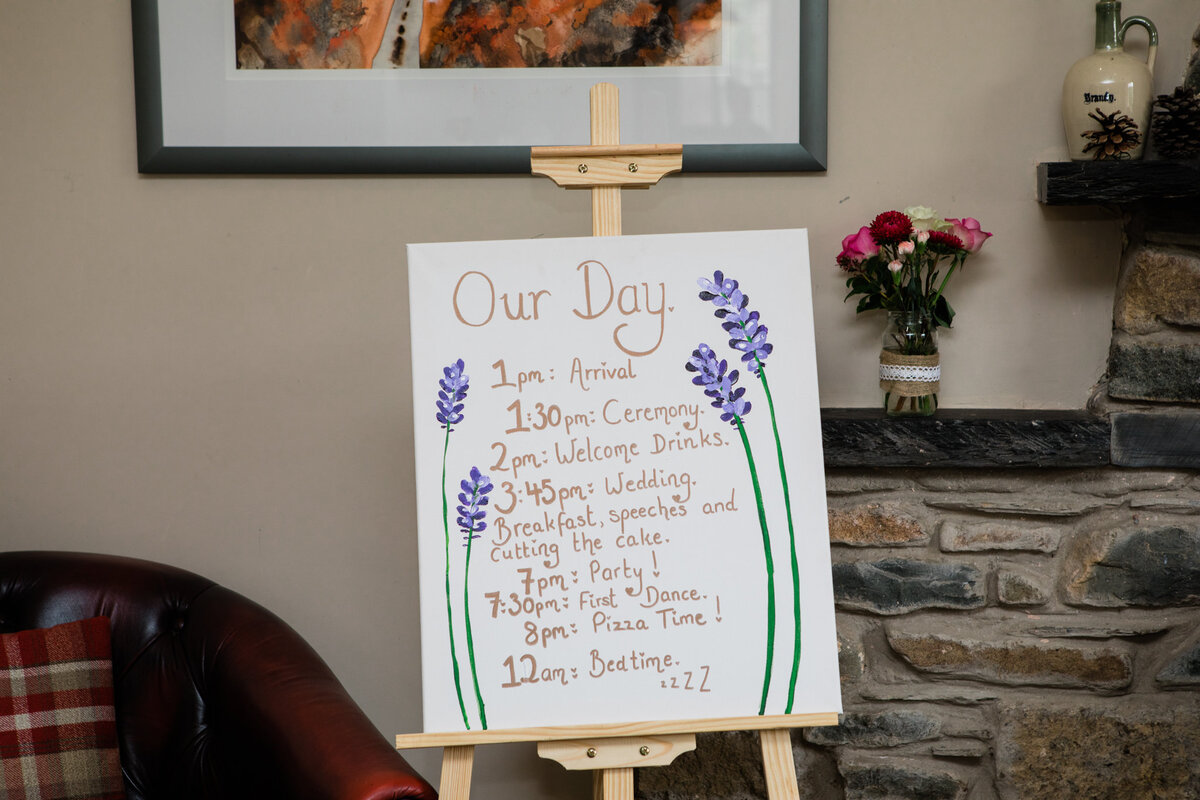 Brandy.
Our Day.
1pm: Arrival
1:30pm: Ceremony.
2pm: Welcome Drinks.
3:45pm: Wedding.
Breakfast, speeches and
cutting the cake.
7pm: Party!
7:30pm: First Dance.
8pm: Pizza Time!
12am: Bedtime.
zzZZ